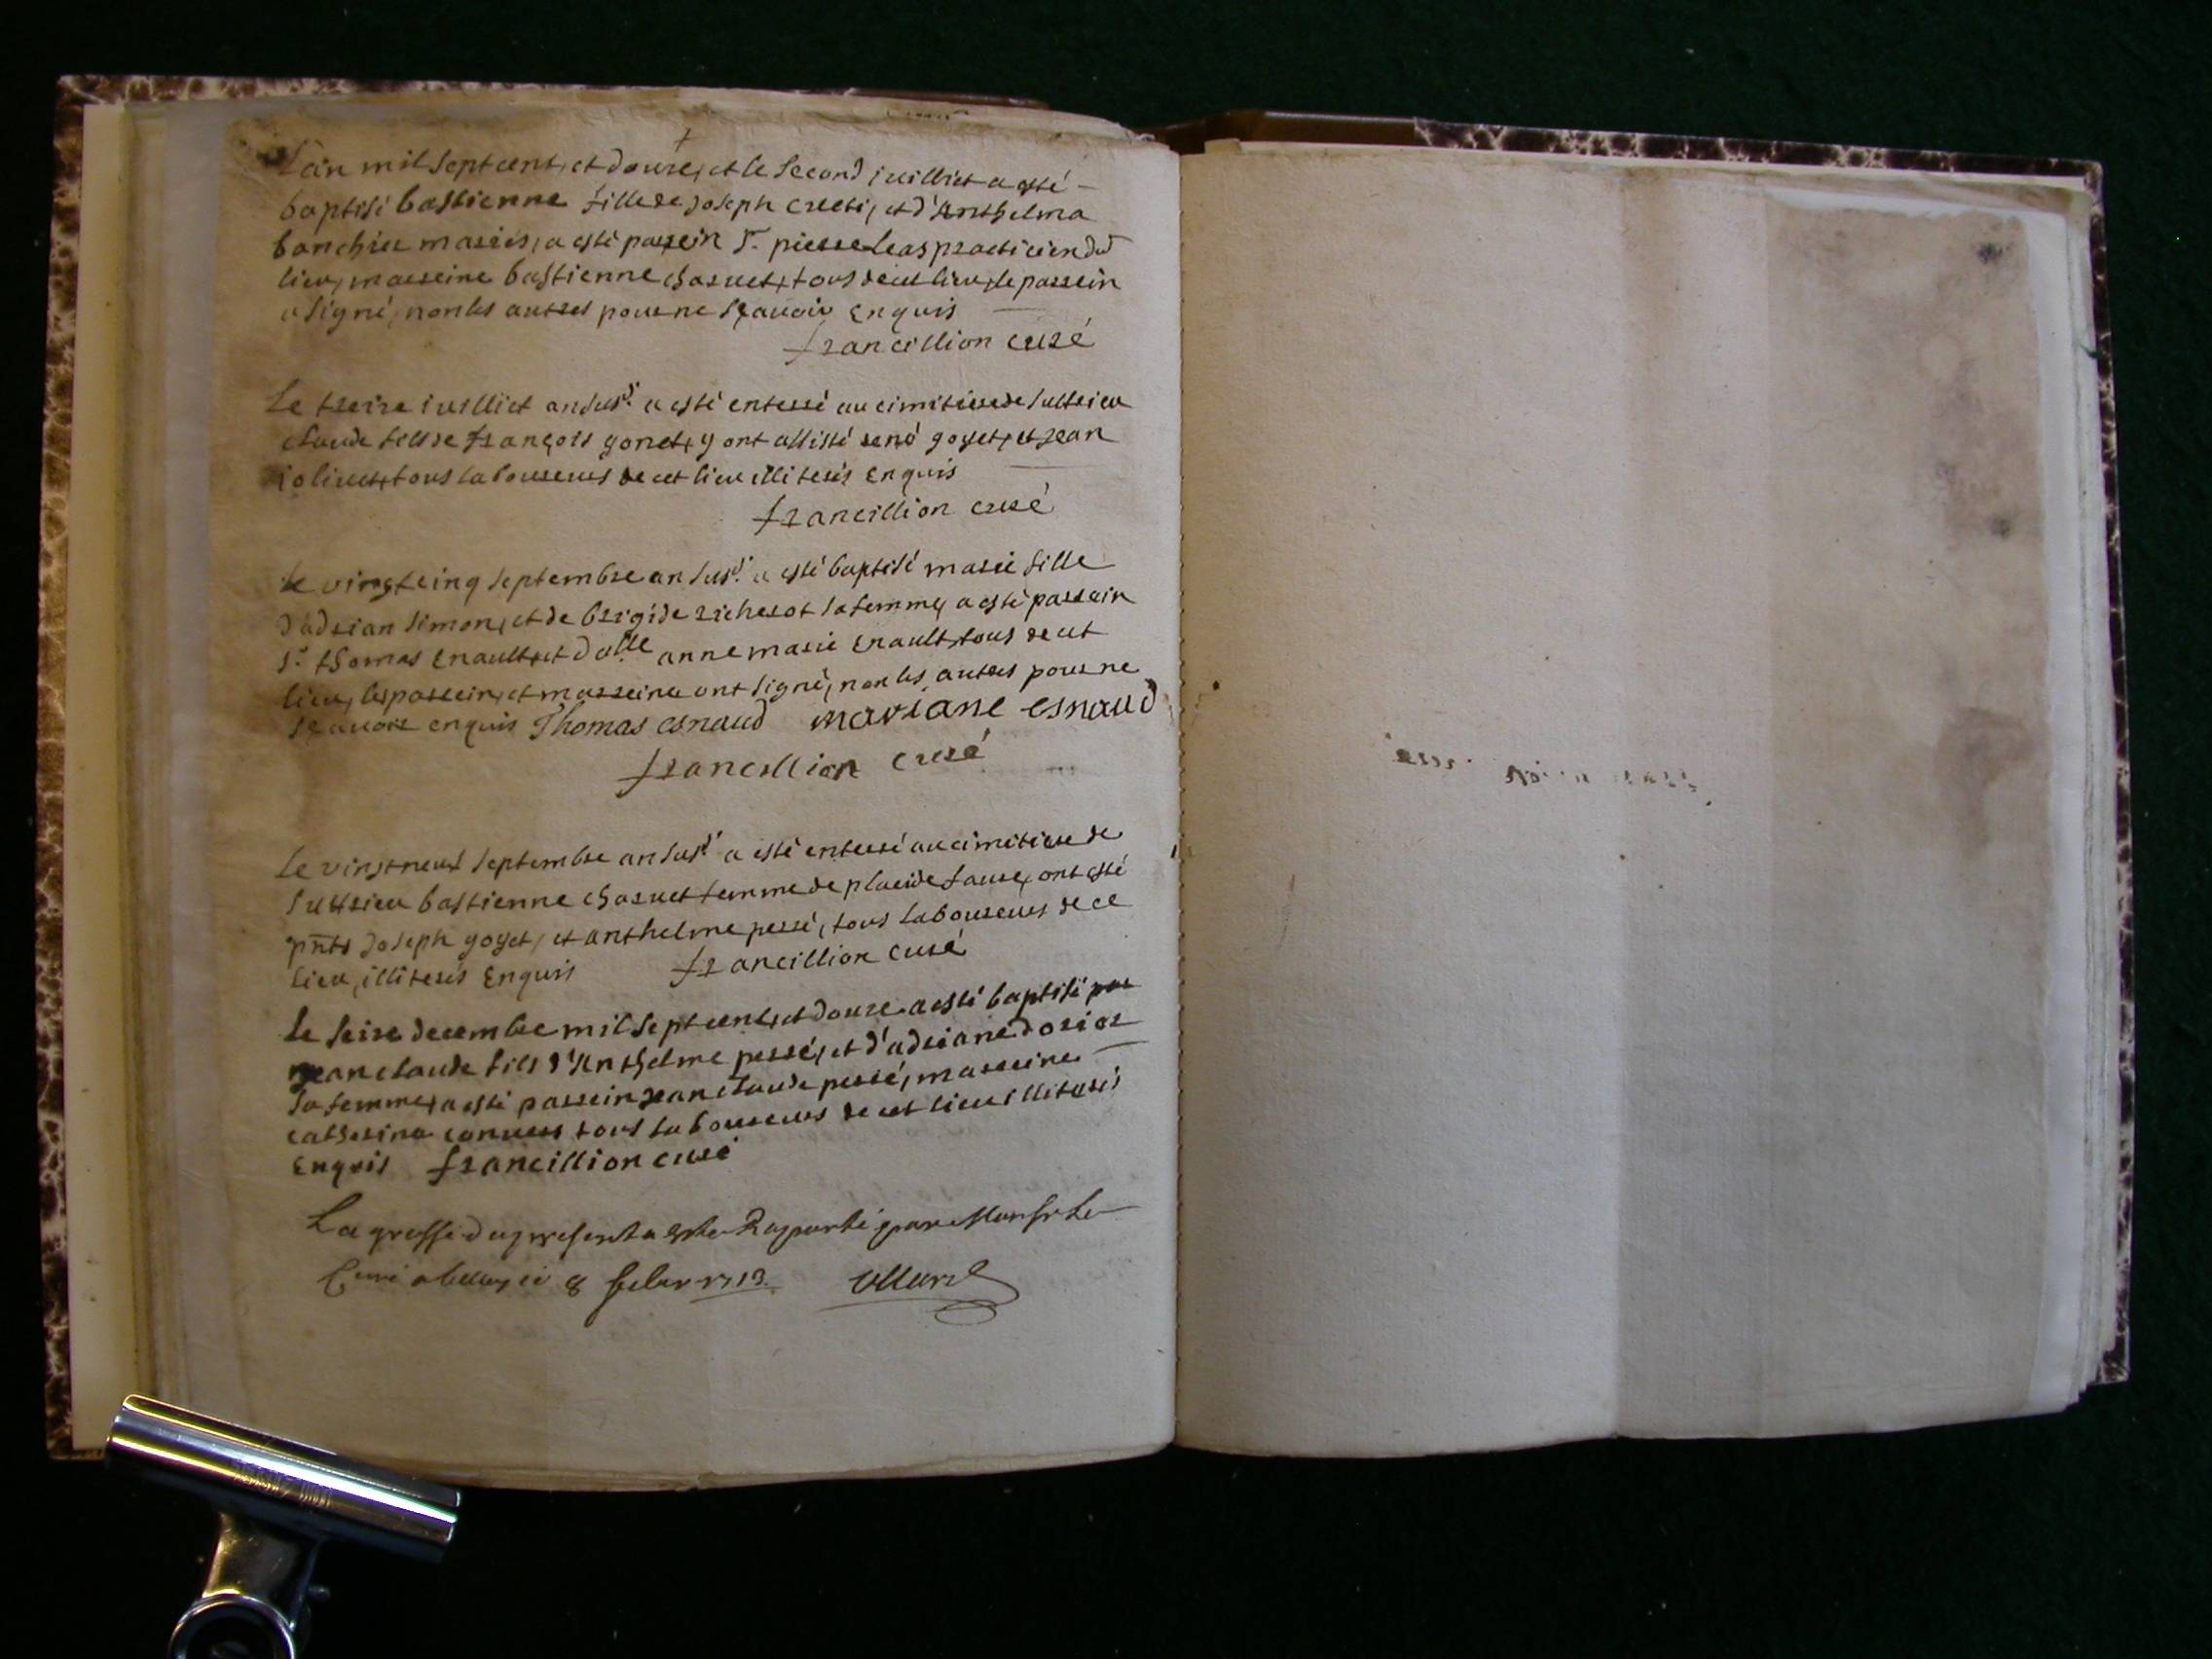 L'an mil sept cent, et douze, et le second juilliet a esté
baptisé bastienne fille de joseph creeti, et d'Anthelma
banchier mariés, a esté parrein Sr. pierre Leas practicien dud
lieu, marreine bastienne charuet, tous de cet lieu, le parrein
a signé, non les autres pour ne sçavoir enquis
francillion curé
Le treize juilliet an susd. a esté enterré au cimitiere de Suttrieu
claude fils de françois gonet, y ont assisté rené goyet, et jean
jolivet, tous laboureurs de cet lieu illiterés enquis
francillion curé
Le vingtcinq septembre an susd. a esté baptisé marie fille
d'adrian simon, et de brigide richerot sa femme, a esté parrain
Sr thomas enault, et dolle anne marie enault, tous de cet
lieu, les parrein, et marreine ont signé, non les autres pour ne
sçavoir enquis Thomas esnaud mariane esnaud
francillion curé
Le vingtneuf septembre an susd a esté enterré au cimitiere de
Suttrieu bastienne charuet femme de placide faure, ont esté
pnts joseph goyet, et anthelme pessé, tous laboureurs de ce
lieu, illiterés enquis francillion curé
Le seize decembre mil sept cent, et douze a esté baptisé
jean claude fils d'Anthelme pessé, et d'adriane dorier
sa femme, a esté parrein jean claude pessé, marreine
catherine tous laboureurs de cet lieu illiterés
enquis francillion curé
La grosse du present a este Raporté par Monsr Le
Curé a belley ce 8 febvr 1713